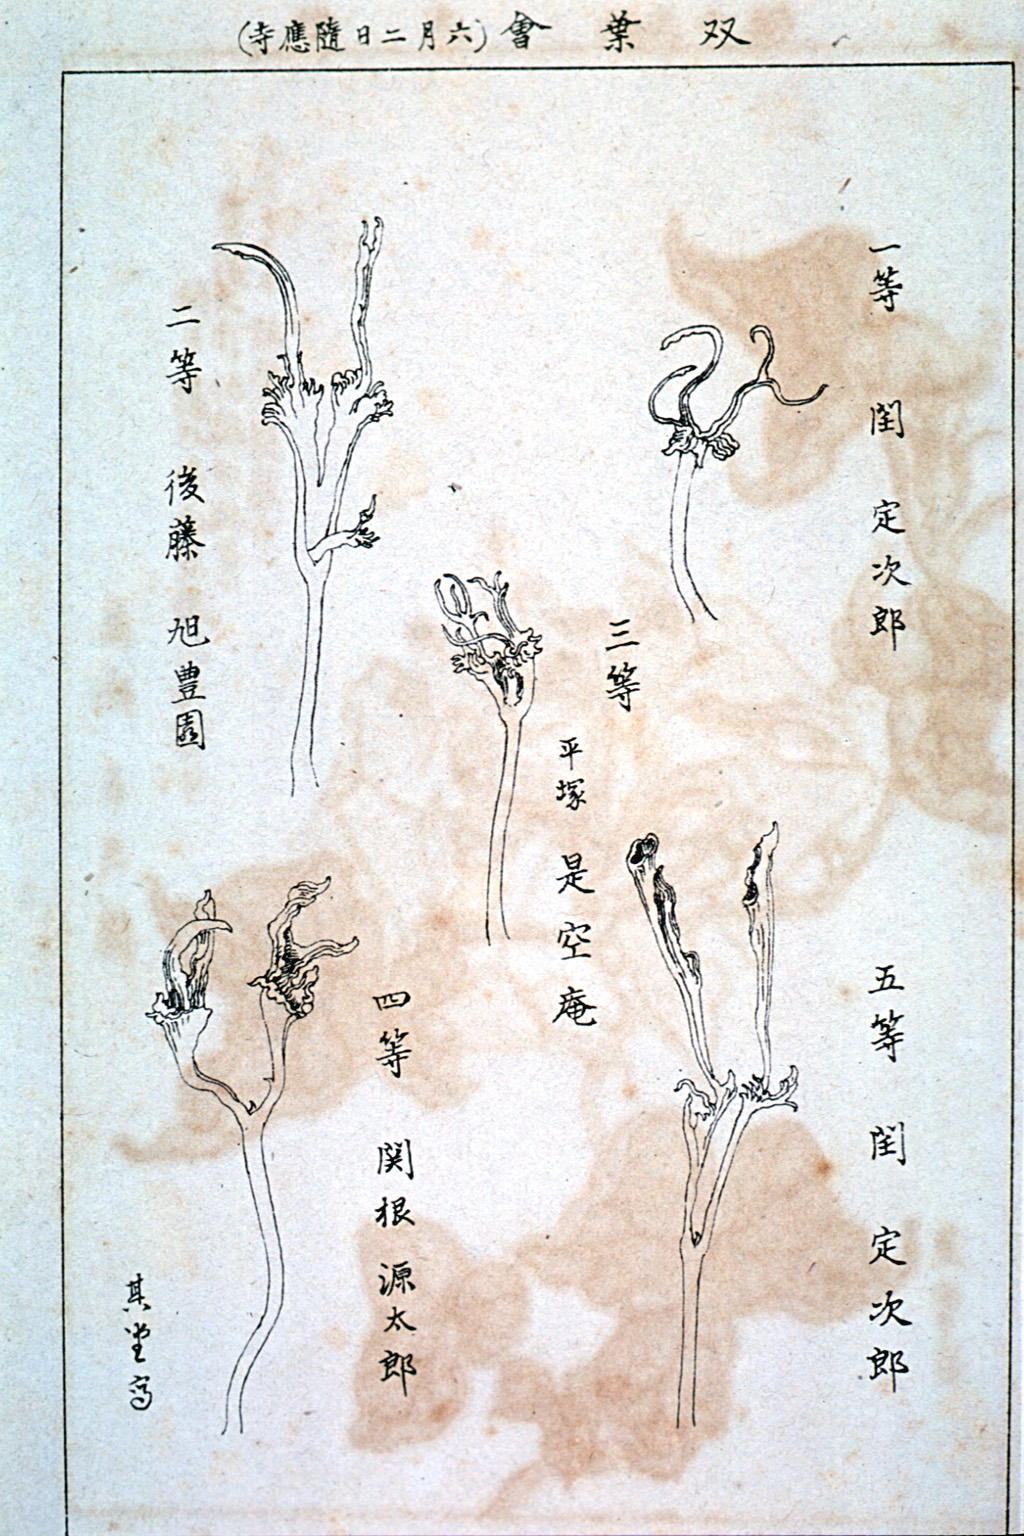 双葉會(六月二日隨應寺)
一等 閏 定次郎
二等 後藤 旭豊園
三等 平塚 是空庵
四等 関根 源太郎
五等 閏 定次郎
其堂写